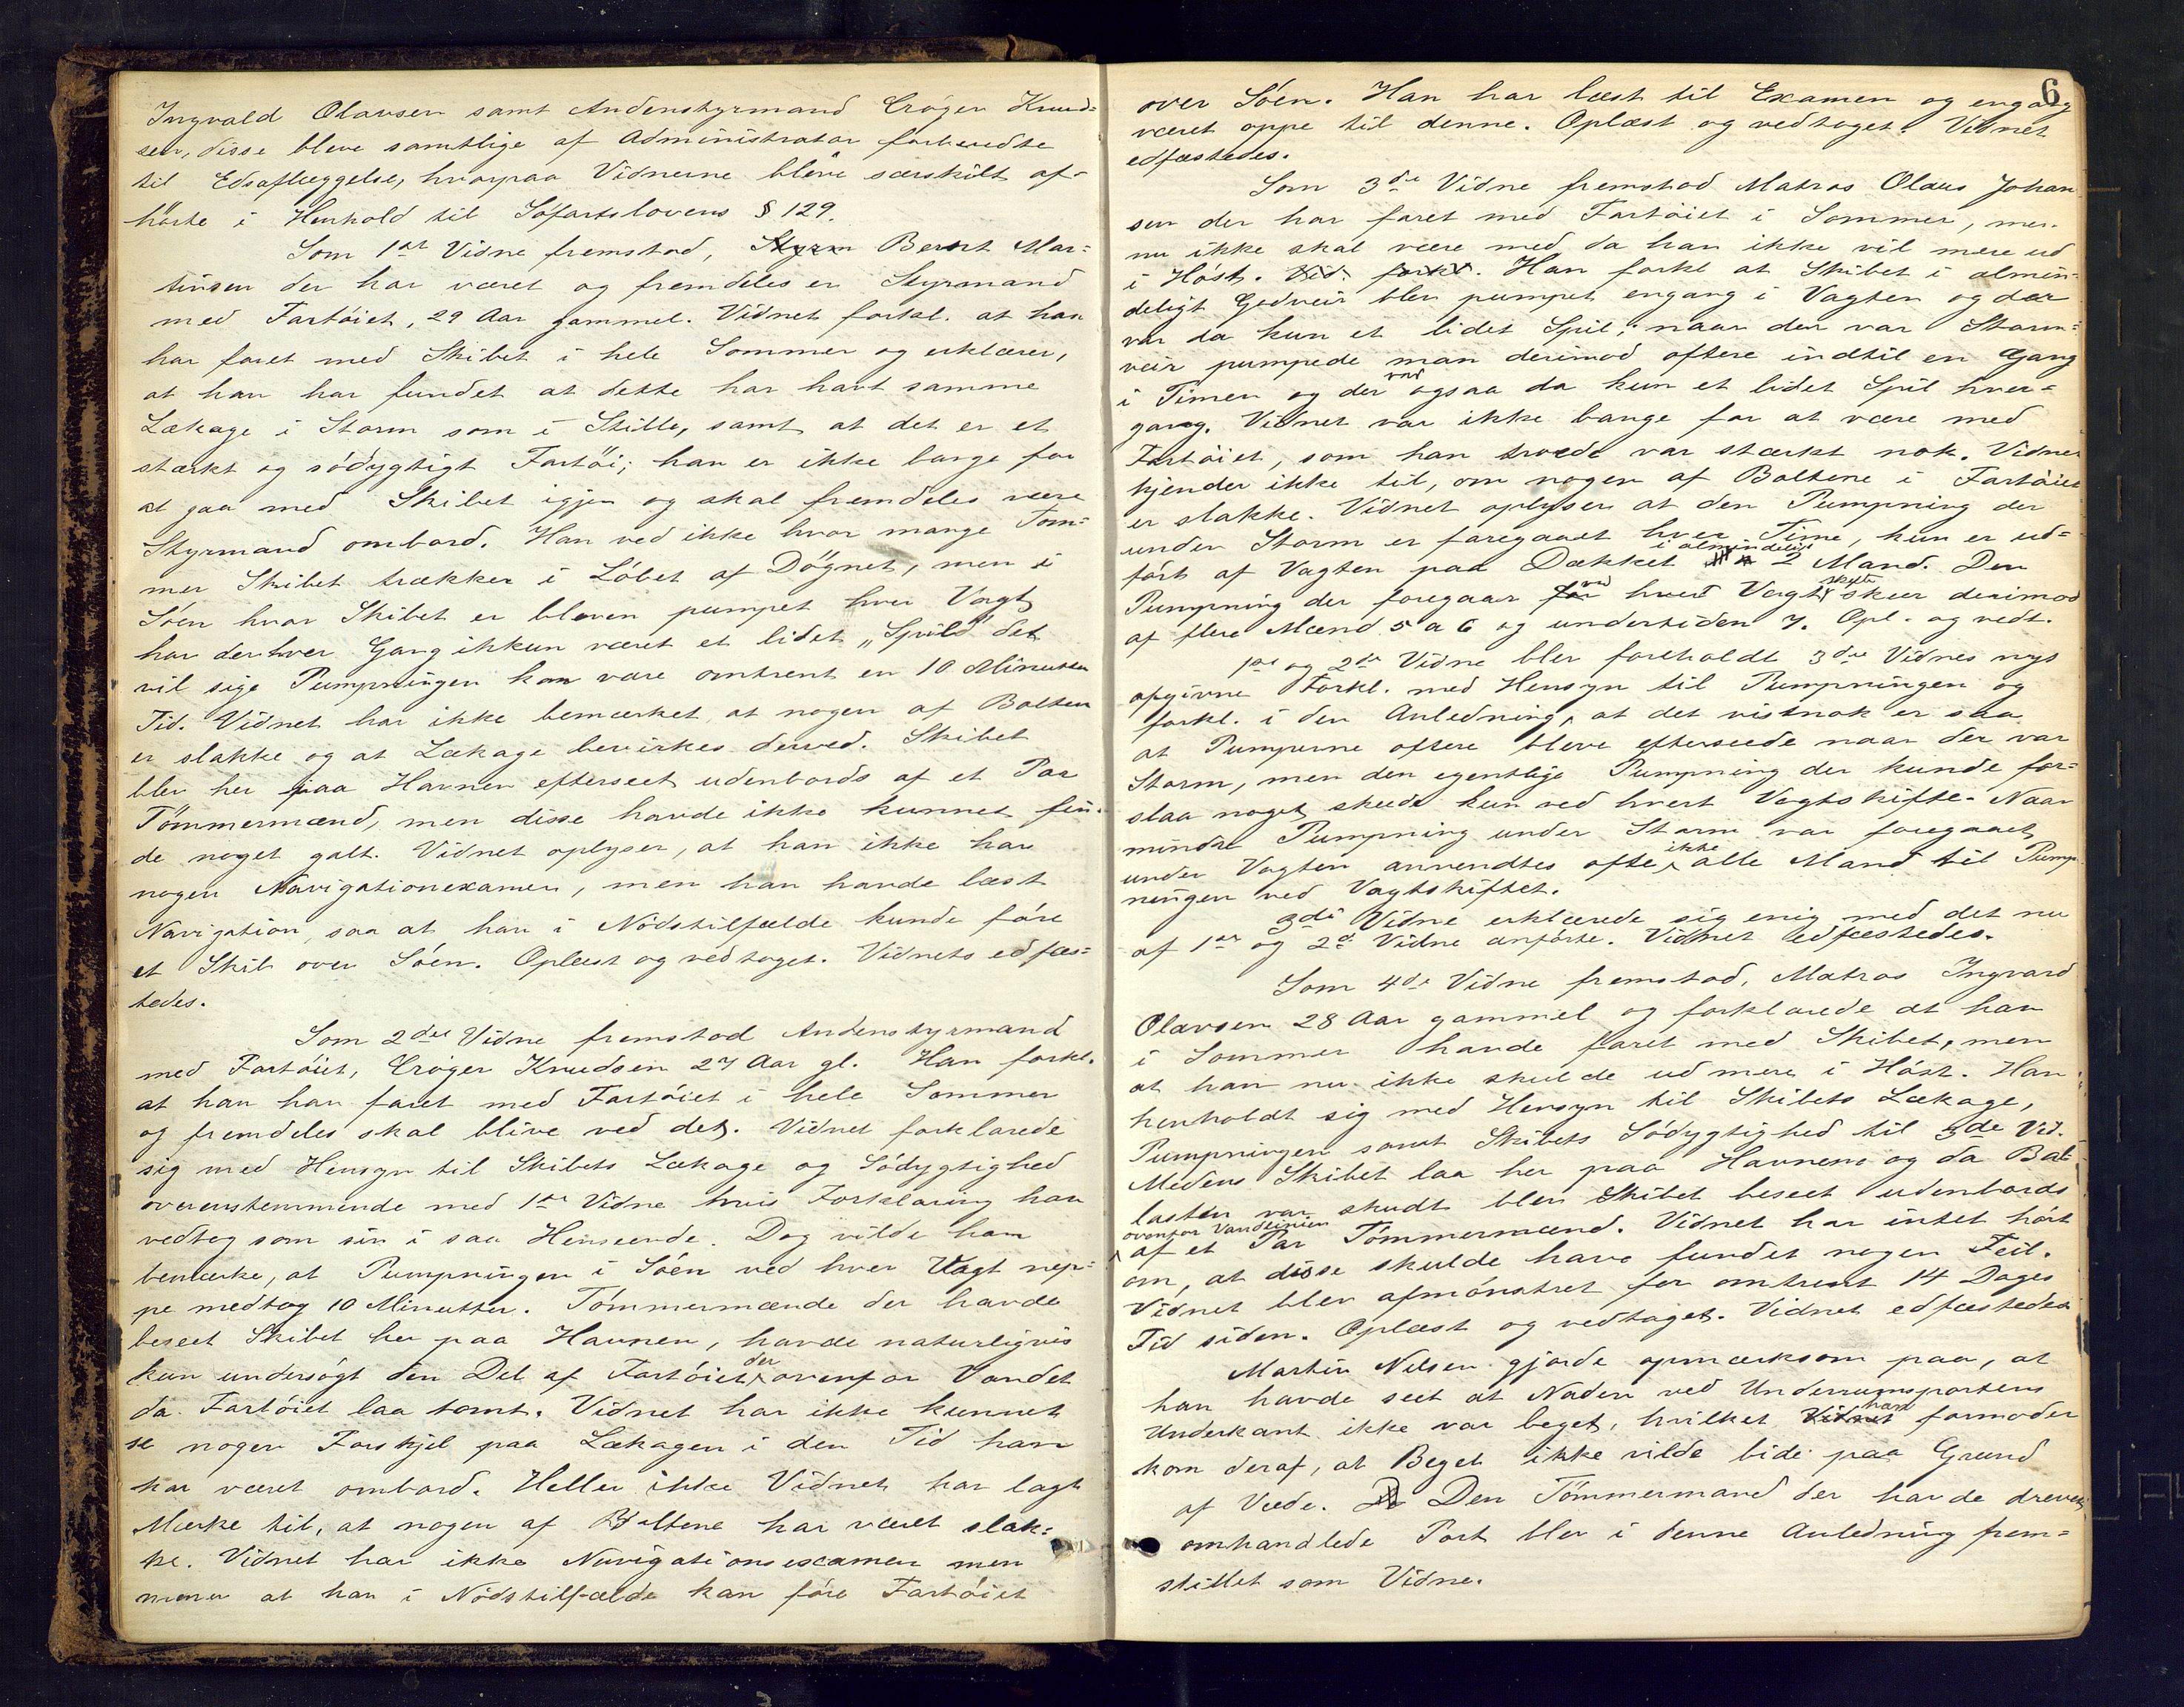 Ingvald Olavsen samt Andenstyrmand Crøger Knud-
sen, disse bleve samtlige af Administrator forberedte
til Edsaflæggelse, hvorpaa Vidnerne bleve særskilt af-
hørte i Henhold til Søfartslovens § 129.
Som 1ste Vidne fremstod, Styrm Bernt Mar-
tinsen der har været og fremdeles er Styrmand
med Fartøiet, 29 Aar gammel. Vidnet forkl. at han
har faret med Skibet i hele Sommer og erklærer,
at han har fundet at dette har havt samme
Lækage i Storm som i Stille, samt at det er et
stærkt og sødygtigt Fartøi; han er ikke bange for
at gaa med Skibet igjen og skal fremdeles være
Styrmand ombord. Han ved ikke hvor mange Tom-
mer Skibet trækker i Løbet af Døgnet, men i
Søen hvor Skibet er bleven pumpet hver Vagt
har der hver Gang ikkun været et lidet „Spild" det
vil sige Pumpningen kan være omtrent en 10 Minutter
Tid. Vidnet har ikke bemærket at nogen af Bolten
er slakke og at Lækage bevirkes derved. Skibet
blev her paa Havnen efterseet udenbords af et Par
Tömmermænd, men disse havde ikke kunnet fin-
de noget galt. Vidnet oplyser, at han ikke har
nogen Navigationexamen, men han havde læst
Navigation, saa at han i Nødstilfælde kunde føre
et Skib over Søen. Oplæst og vedtaget. Vidnets edfæs-
tedes.
Som 2det Vidne fremstod Andenstyrmand
med Fartøiet, Crøger Knudsen 27 Aar gl. Han forkl.
at han har faret med Fartøiet i hele Sommer
og fremdeles skal blive ved det. Vidnet forklarede
sig med Hensyn til Skibets Lækage og Sødygtighed
overenstemmende med 1ste Vidne hvis Forklaring han
vedtog som sin i saa Henseende. Dog vilde han
bemærke, at Pumpningen i Søen ved hver Vagt nep-
pe medtog 10 Minutter. Tømmermænde der havde
beseet Skibet her paa Havnen, havde naturligvis
kun undersøgt den Del af Fartøiet der ovenfor Vandet
da Fartøiet laa tomt. Vidnet har ikke kunnet
se nogen Forskjel paa Lækagen i den Tid han
har været ombord. Heller ikke Vidnet har lagt
Mærke til, at nogen af Boltene har været slak-
ke. Vidnet har ikke Navigationsexamen men
mener at han i Nødstilfælde kan føre Fartøiet
6
over Søen. Han har læst til Examen og engang
været oppe til denne. Oplæst og vedtaget. Vidnet
edfæstedes.
Som 3die Vidne fremstod Matros Olaus Johan
sen der har faret med Fartøiet i Sommer, men
nu ikke skal være med da han ikke vil mere ud
i Høst. Vid. forkl. Han forkl at Skibet i almin-
deligt Godveir blev pumpet engang i Vagten og der
var da kun et lidet Spil; naar der var Storm-
veir pumpede man derimod oftere indtil en Gang
i Timen og der var ogsaa da kun et lidet Spil hver-
gang. Vidnet var ikke bange for at være med
Fartøiet, som han troede var stærkt nok. Vidnet
kjender ikke til, om nogen af Boltene i Fartøiet
er slakke. Vidnet oplyser at den Pumpning der
under Storm er foregaaet hver Time, kun er ud-
ført af Vagten paa Dækket i almindelig 2 Mand. Den
Pumpning der foregaar for ved hvert Vagtskifte skeer derimod
af flere Mænd 5 a 6 og undertiden 7. Opl. og vedt.
1ste og 2det Vidne blev foreholdt 3die Vidnes nys
opgivne Forkl. med Hensyn til Pumpningen og
forkl. i den Anledning, at det vistnok er saa
at Pumperne oftere bleve efterseede naar der var
Storm, men den egentlige Pumpning der kunde for-
slaa noget skede kun ved hvert Vagtskifte. Naar
mindre Pumpning under Storm var foregaaet
under Vagten anvendtes ofte ikke alle Mand til Pump-
ningen ved Vagtskiftet.
3die Vidne erklærede sig enig med det nu
af 1ste og 2d. Vidne anførte. Vidnet edfæstedes.
Som 4de Vidne fremstod, Matros Ingvard
Olavsen 28 Aar gammel og forklarede at han
i Sommer havde faret med Skibet, men
at han nu ikke skulde ud mere i Høst. Han
henholdt sig med Hensyn til Skibets Lækage,
Pumpningen samt Skibets Sødygtighed til 3de Vid.
Medens Skibet laa her paa Havnen og da Bal-
lasten var skudt blev Skibet beseet udenbords
ovenfor Vandlinien af et Par Tömmermænd. Vidnet har intet hørt
om, at disse skulde have fundet nogen Feil.
Vidnet blev afmønstret for omtrent 14 Dages
Tid siden. Oplæst og vedtaget. Vidnet edfæstedes
Martin Nilsen gjorde opmærksom paa, at
han havde seet at Naden ved Underrumsportens
Underkant ikke var beget, hvilket Vidnet han formoder
kom deraf, at Beget ikke vilde bide paa Grund
af Væde. Den Tömmermand der havde drevet
omhandlede Port blev i denne Anledning frem-
stillet som Vidne.